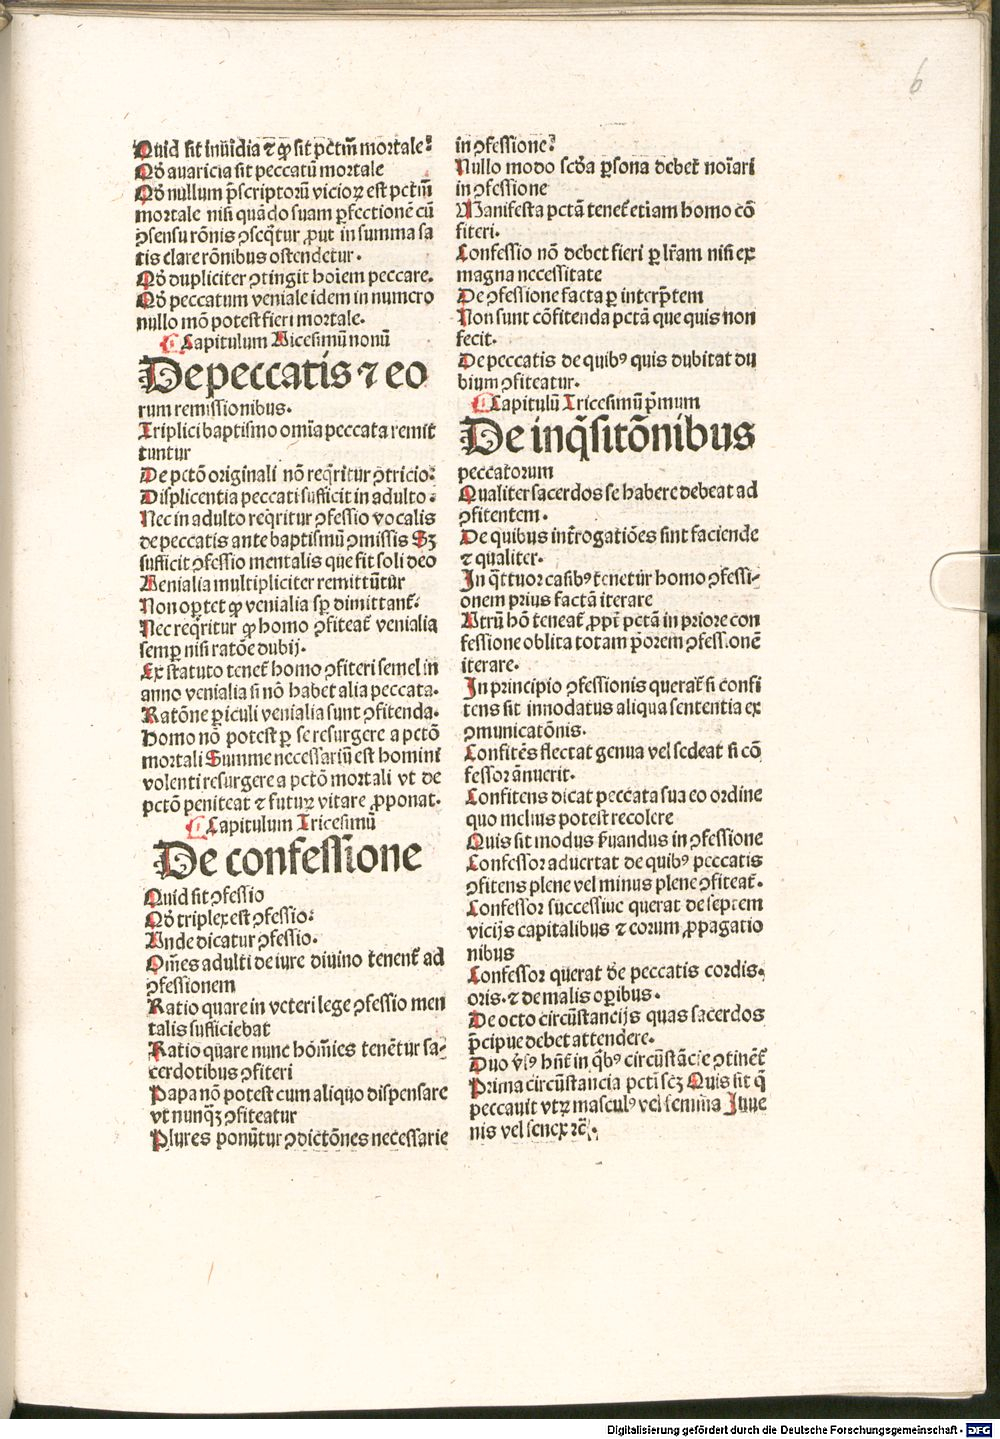 6
Quid sit inuidia ⁊ ꝙ sit pctm̄ mortale:
Qð auaricia sit peccatū mortale
Qð nullum p̄scriptoꝝ vicioꝝ est pctm̄
mortale nisi quādo suam ꝑfectionē cū
ꝯsensu rōnis ꝯseq̄tur ꝓut in summa sa
tis clare rōnibus ostendetur.
Qð dupliciter ꝯtingit hoīem peccare.
Qð peccatum veniale idem in numero
nullo mō potest fieri mortale.
Capitulum Vicesimū nonū
De peccatis ⁊ eo
rum remissionibus.
Triplici baptismo omīa peccata remit
tuntur
De pctō originali nō req̄ritur ꝯtricio:
Displicentia peccati sufficit in adulto:
Nec in adulto req̄ritur ꝯfessio vocalis
de peccatis ante baptismū ꝯmissis Sꝫ
sufficit ꝯfessio mentalis que fit soli deo
Venialia multipliciter remittūtur
Non oꝑtet ꝙ venialia sꝑ dimittant̄:
Nec req̄ritur ꝙ homo ꝯfiteat̄ venialia
semꝑ nisi ratōe dubij.
Ex statuto tenet̄ homo ꝯfiteri semel in
anno venialia si nō habet alia peccata.
Ratōne ꝑiculi venialia sunt ꝯfitenda.
Homo nō potest ꝑ se resurgere a pctō
mortali Summe necessariū est homini
volenti resurgere a pctō mortali vt de
pctō peniteat ⁊ futuꝝ vitare ꝓponat.
Capitulum Tricesimū
De confessione
Quid sit ꝯfessio
Qð triplex est ꝯfessio:
Vnde dicatur ꝯfessio.
Om̄es adulti de iure diuino tenent̄ ad
ꝯfessionem
Ratio quare in veteri lege ꝯfessio men
talis sufficiebat
Ratio quare nunc hōmies tenētur sa-
cerdotibus ꝯfiteri
Papa nō potest cum aliquo dispensare
vt nunqꝫ ꝯfiteatur
Plures ponūtur ꝯdictōnes necessarie
in ꝯfessione:
Nullo modo scd̄a ꝑsona debet̄ noīari
in ꝯfessione
Manifesta pctā tenet̄ etiam homo cō
fiteri.
Confessio nō debet fieri ꝑ lr̄am nisi ex
magna necessitate
De ꝯfessione facta ꝑ interp̄tem
Non sunt cōfitenda pctā que quis non
fecit.
De peccatis de quibꝰ quis dubitat du
bium ꝯfiteatur.
Capitulū Tricesimū p̄mum
De inq̄sitōnibus
peccatorum
Qualiter sacerdos se habere debeat ad
ꝯfitentem.
De quibus int̄rogatiōes sint faciende
⁊ qualiter.
In q̄ttuor casibꝰ tenetur homo ꝯfessi-
onem prius factā iterare
Vtrū hō teneat̄ ꝓpt̄ pctā in priore con
fessione oblita totam p̄orem ꝯfessionē
iterare.
In principio ꝯfessionis querat̄ si confi
tens sit innodatus aliqua sententia ex
ꝯmunicatōnis.
Confitēs flectat genua vel sedeat si cō
fessor ānuerit.
Confitens dicat peccata sua eo ordine
quo melius potest recolere
Quis sit modus ẜuandus in ꝯfessione
Confessor aduertat de quibꝰ peccatis
ꝯfitens plene vel minus plene ꝯfiteat̄.
Confessor successiue querat de septem
vicijs capitalibus ⁊ eorum ꝓpagatio
nibus
Confessor querat de peccatis cordis.
oris. ⁊ de malis oꝑibus.
De octo circūstancijs quas sacerdos
p̄cipue debet attendere.
Duo v̄sꝰ hn̄t in q̄bꝰ circūstācie ꝯtinēt̄
Prima circūstancia pcti scꝫ Quis sit q̄
peccauit vtꝝ masculꝰ vel femina Iuue
nis vel senex ⁊c̄.
Digitalisierung gefördert durch die Deutsche Forschungsgemeinschaft - DFG